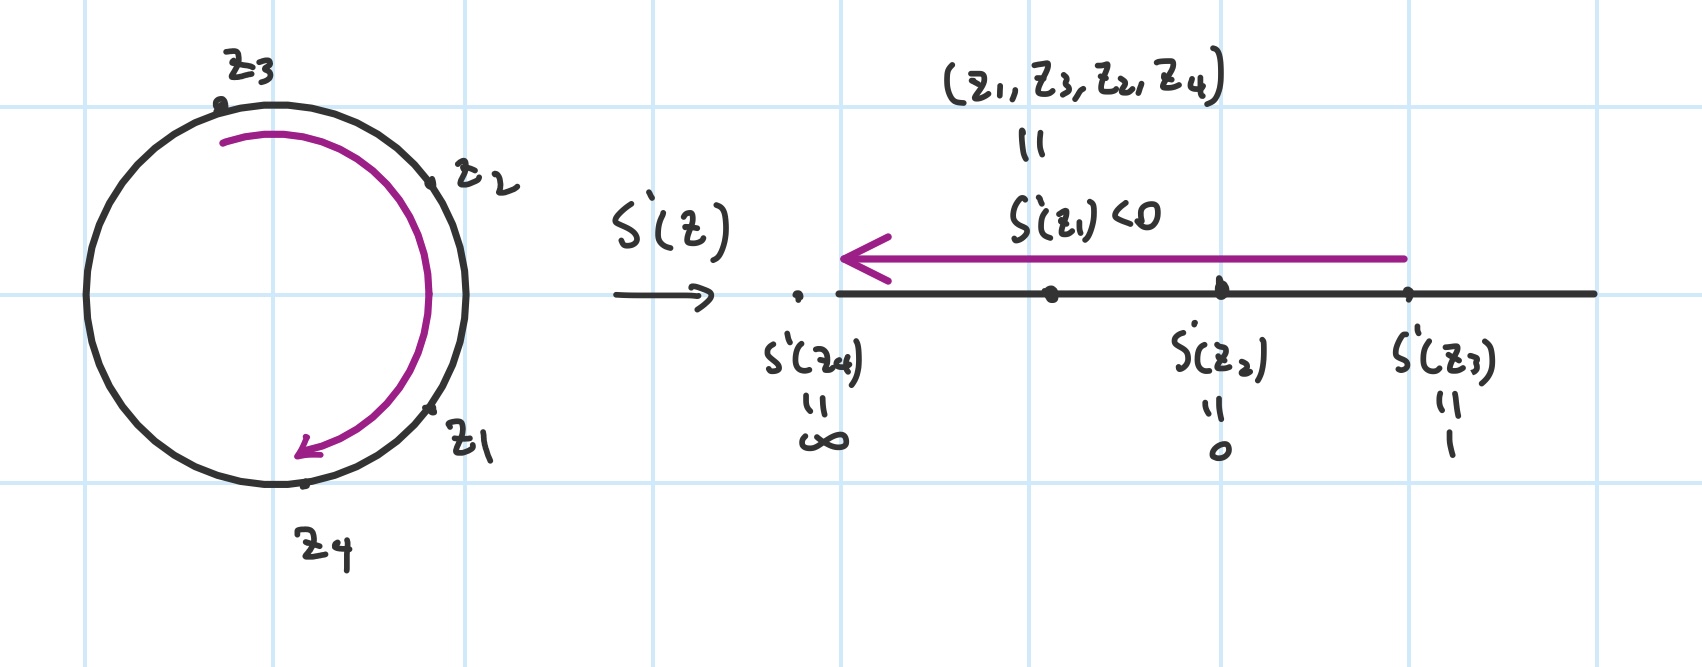 z3
z2
z1
z4
S'(z)
→
(z1, z3, z2, z4)
=
S'(z1) <0
S'(z4)
=
∞
S'(z2)
=
0
S'(z3)
=
1